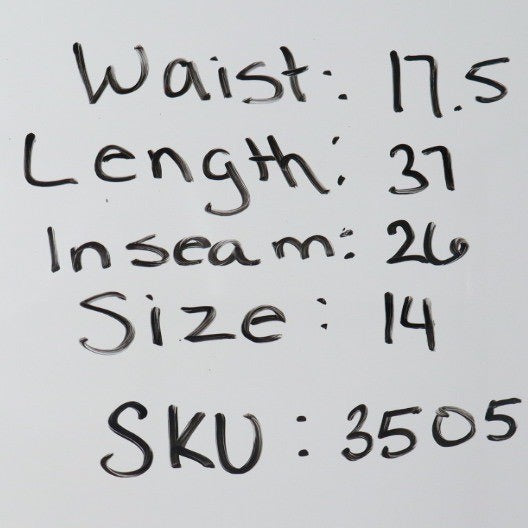 Waist: 17.5
Length: 37
Inseam: 26
Size: 14
SKU: 3505